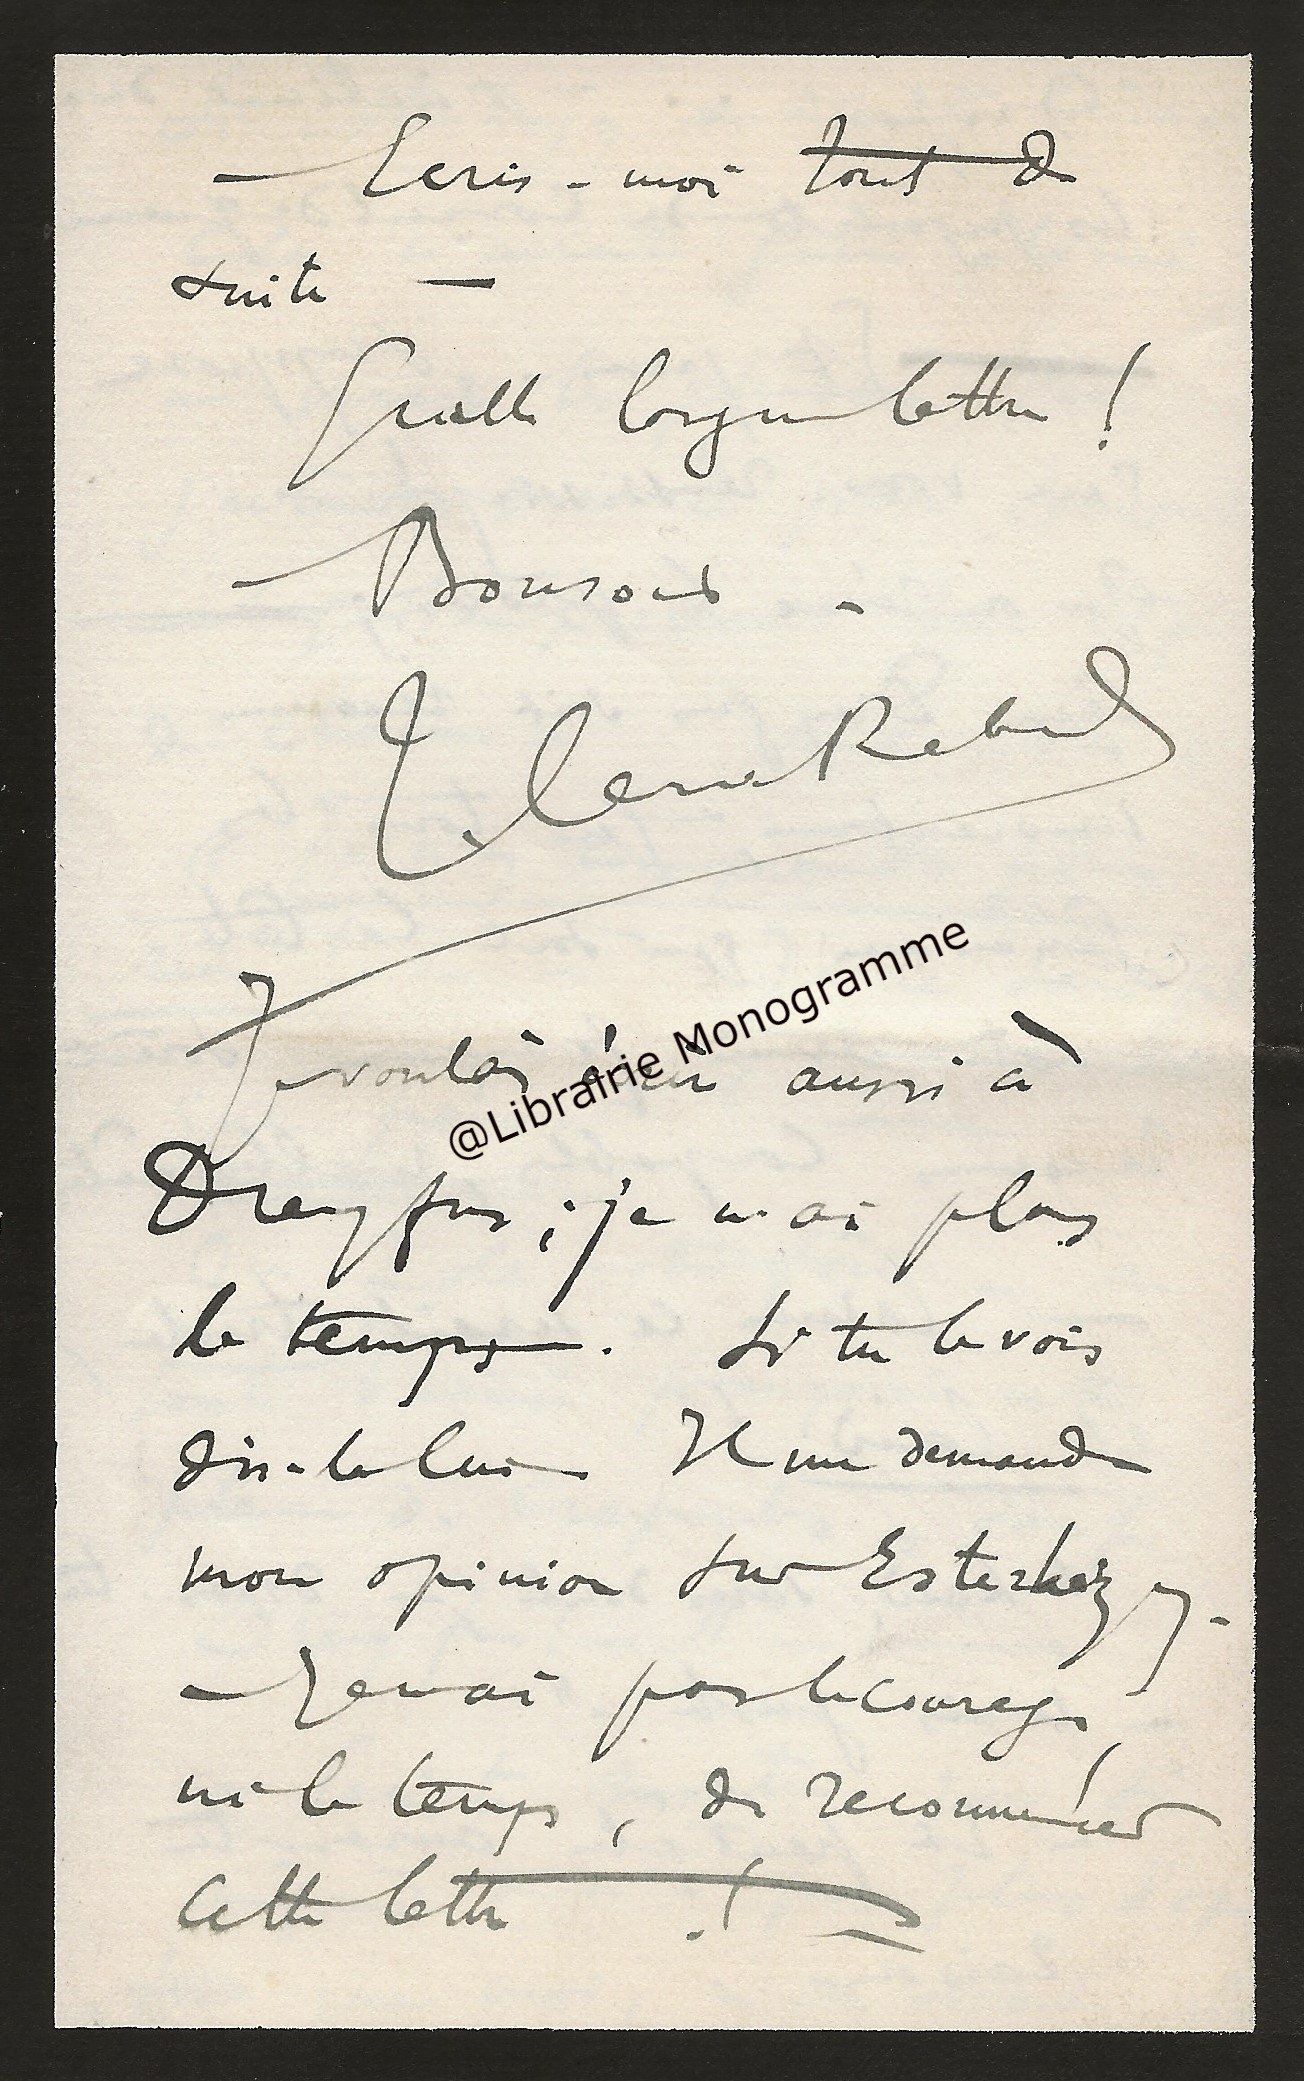 — Ecris-moi tout de
suite —
Quelle longue lettre !
— Bonsoir -
Je voulais écrire aussi à
@Librairie Monogramme
Dreyfus ; je n'ai plus
le temps. Si tu le vois
dis-le lui Il me demande
mon opinion sur Esterhazy -
— Je n'ai pas le courage
ni le temps, de recommencer
cette lettre !